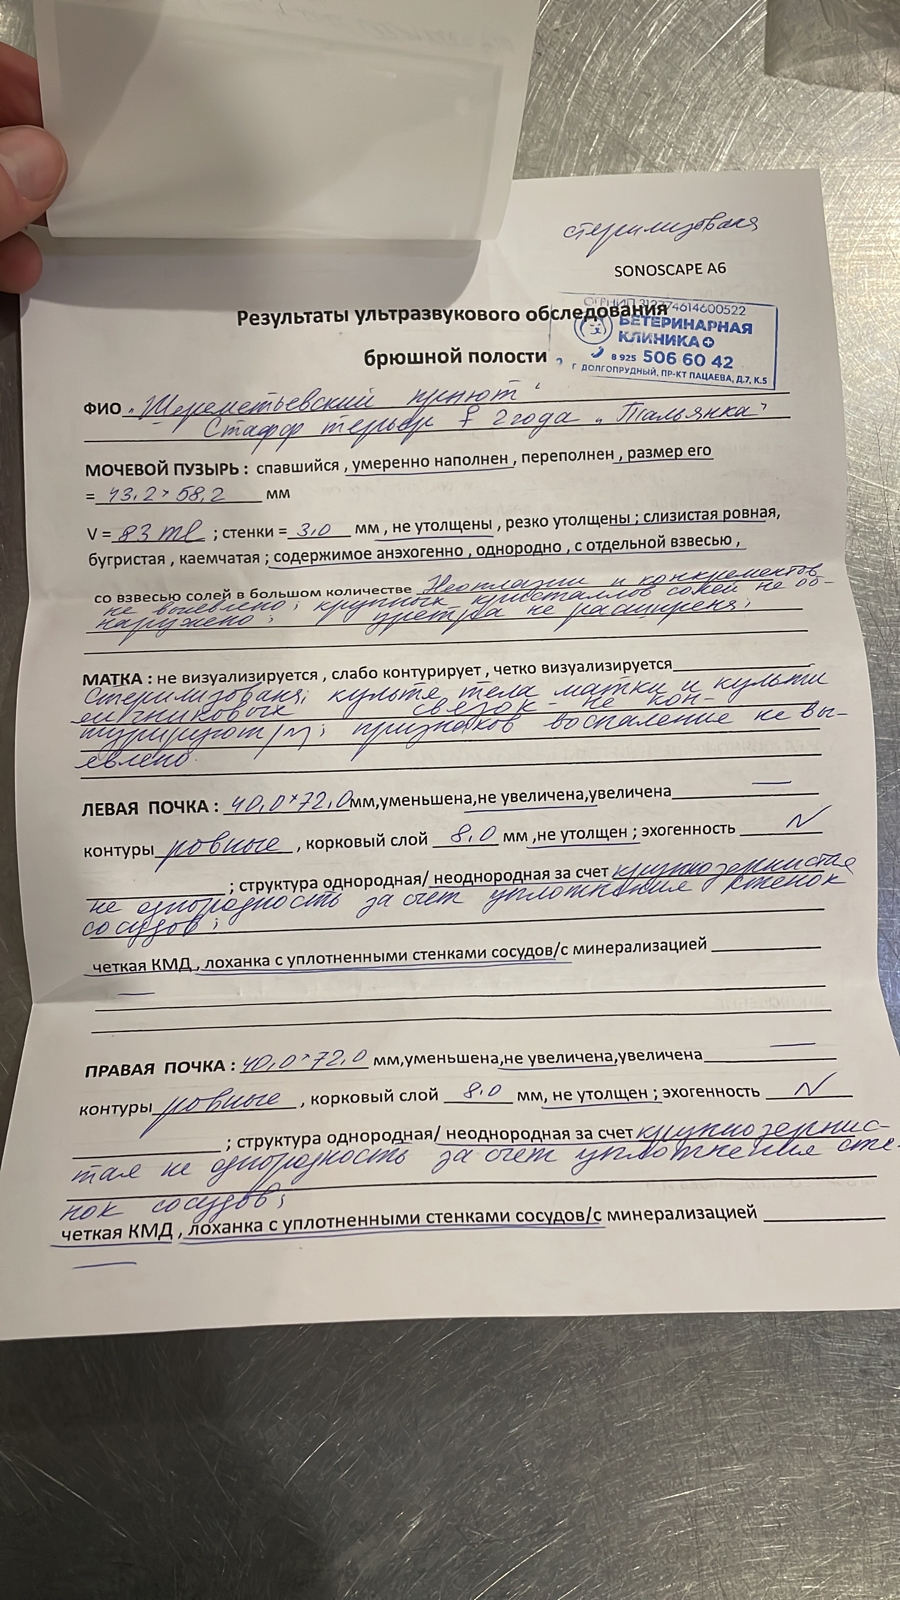 стерилизованя
SONOSCAPE A6
Результаты ультразвукового обследования
брюшной полости
ОГРНИП 312774614600522
ВЕТЕРИНАРНАЯ
КЛИНИКА
8 925 506 60 42
г. ДОЛГОПРУДНЫЙ, ПР-КТ ПАЦАЕВА, Д.7, К.5
ФИО „Шереметьевский приют"
Стафф терьер ♀ 2 года „Тальянка"
МОЧЕВОЙ ПУЗЫРЬ : спавшийся , умеренно наполнен , переполнен , размер его
= 43,2 × 58,2 мм
V = 83 ml ; стенки = 3,0 мм , не утолщены , резко утолщены ; слизистая ровная,
бугристая , каемчатая ; содержимое анэхогенно , однородно , с отдельной взвесью ,
со взвесью солей в большом количестве Неоплазии и конкрементов
не выевлено; крупных кристаллов солей не об-
наружено; уретра не расширеня;
МАТКА : не визуализируется , слабо контурирует , четко визуализируется
Стерилизованя; культя тела матки и культи
яичниковых связок - не кон-
турируют(л); признаков воспаление не вы-
явлено.
ЛЕВАЯ ПОЧКА : 40,0×72,0 мм,уменьшена,не увеличена,увеличена —
контуры ровные , корковый слой 8,0 мм ,не утолщен ; эхогенность N
; структура однородная/ неоднородная за счет крупнозернистая
не однородность за счет уплотнения стенок
сосудов;
четкая КМД , лоханка с уплотненными стенками сосудов/с минерализацией
—
ПРАВАЯ ПОЧКА : 40,0×72,0 мм,уменьшена,не увеличена,увеличена —
контуры ровные , корковый слой 8,0 мм, не утолщен ; эхогенность N
; структура однородная/ неоднородная за счет крупнозернис-
тая не однородность за счет уплотнения сте-
нок сосудов;
четкая КМД , лоханка с уплотненными стенками сосудов/с минерализацией
—